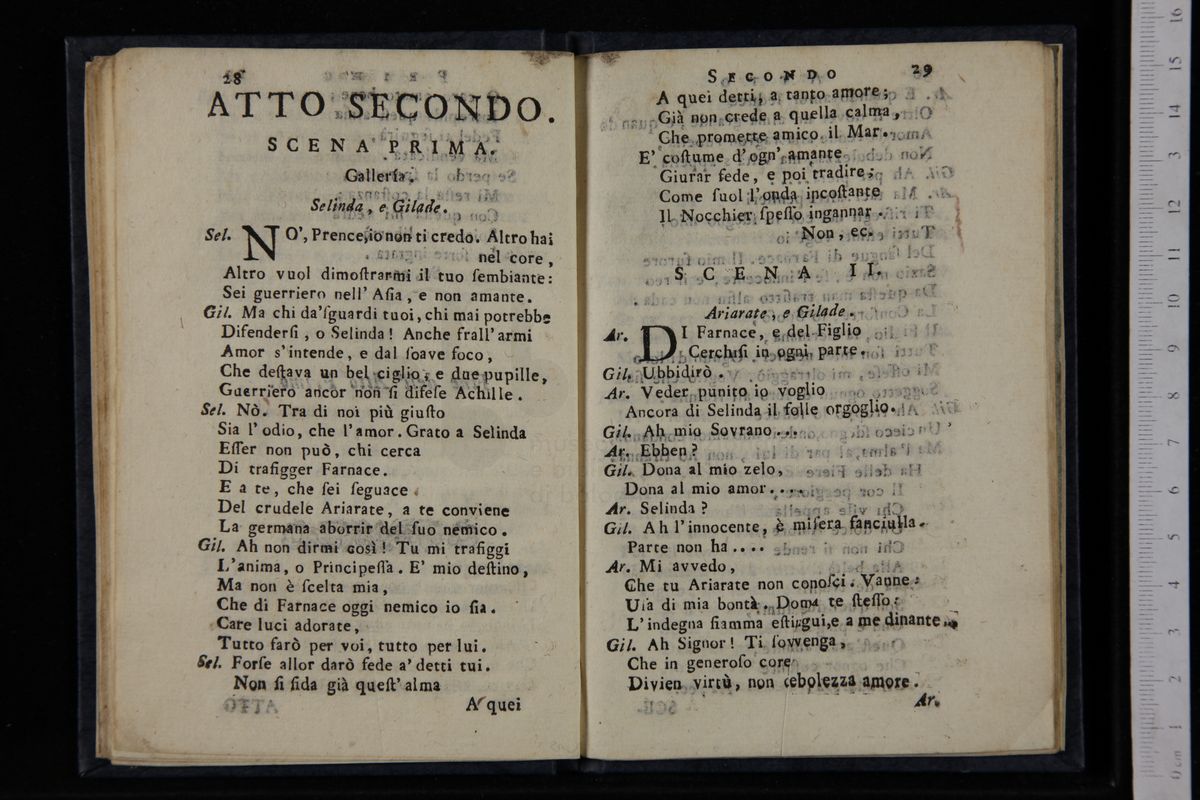 28
ATTO SECONDO.
SCENA PRIMA.
Gallería.
Selinda, e Gilade.
Sel. NO', Prence, io non ti credo. Altro hai
nel core,
Altro vuol dimoſtrarmi il tuo ſembiante:
Sei guerriero nell' Aſia, e non amante.
Gil. Ma chi da'ſguardi tuoi, chi mai potrebbe
Difenderſi, o Selinda! Anche frall' armi
Amor s'intende, e dal ſoave foco,
Che deſtava un bel ciglio, e due pupille,
Guerriero ancor non ſi difeſe Achille.
Sel. Nò. Tra di noi più giuſto
Sia l'odio, che l'amor. Grato a Selinda
Eſſer non può, chi cerca
Di trafigger Farnace.
E a te, che ſei ſeguace
Del crudele Ariarate, a te conviene
La germana aborrir del ſuo nemico.
Gil. Ah non dirmi così! Tu mi trafiggi
L'anima, o Principeſſa. E' mio deſtino,
Ma non è ſcelta mia,
Che di Farnace oggi nemico io ſia.
Care luci adorate,
Tutto farò per voi, tutto per lui.
Sel. Forſe allor darò fede a' detti tui.
Non ſi fida già queſt' alma
A quei
SECONDO 29
A quei detti, a tanto amore;
Già non crede a quella calma,
Che promette amico il Mar.
E' coſtume d'ogn' amante
Giurar fede, e poi tradire;
Come ſuol l'onda incoſtante
Il Nocchier ſpeſſo ingannar.
Non, ec.
SCENA II.
Ariarate, e Gilade.
Ar. DI Farnace, e del Figlio
Cerchiſi in ogni parte.
Gil. Ubbidirò.
Ar. Veder punito io voglio
Ancora di Selinda il folle orgoglio.
Gil. Ah mio Sovrano....
Ar. Ebben?
Gil. Dona al mio zelo,
Dona al mio amor....
Ar. Selinda?
Gil. Ah l'innocente, è miſera fanciulla
Parte non ha....
Ar. Mi avvedo,
Che tu Ariarate non conoſci. Vanne:
Uſa di mia bontà. Doma te ſteſſo:
L'indegna fiamma eſtingui, e a me dinante..
Gil. Ah Signor! Ti ſovvenga,
Che in generoſo core
Divien virtù, non debolezza amore.
Ar.